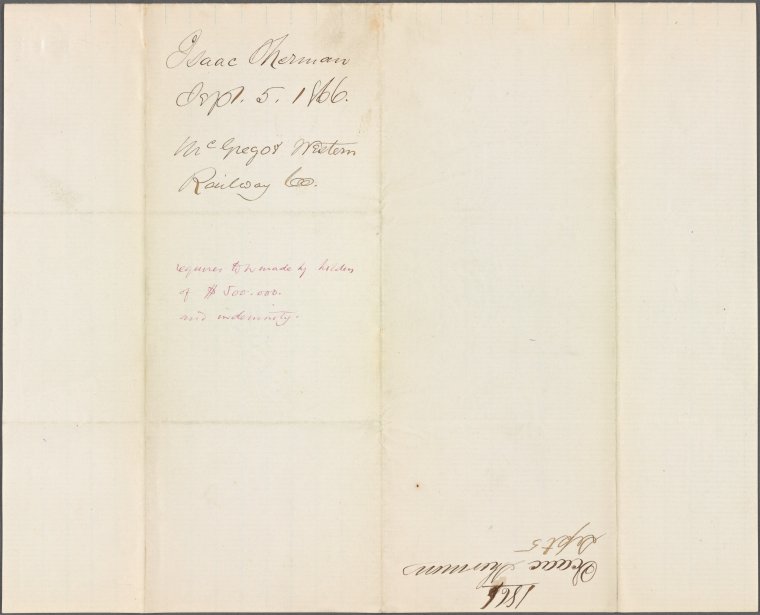 Isaac Sherman
Sept. 5. 1866.
McGregor Western
Railway Co.
requires to be made by holders
of $500.000.
and indemnity.
1866
Isaac Sherman
Sept 5